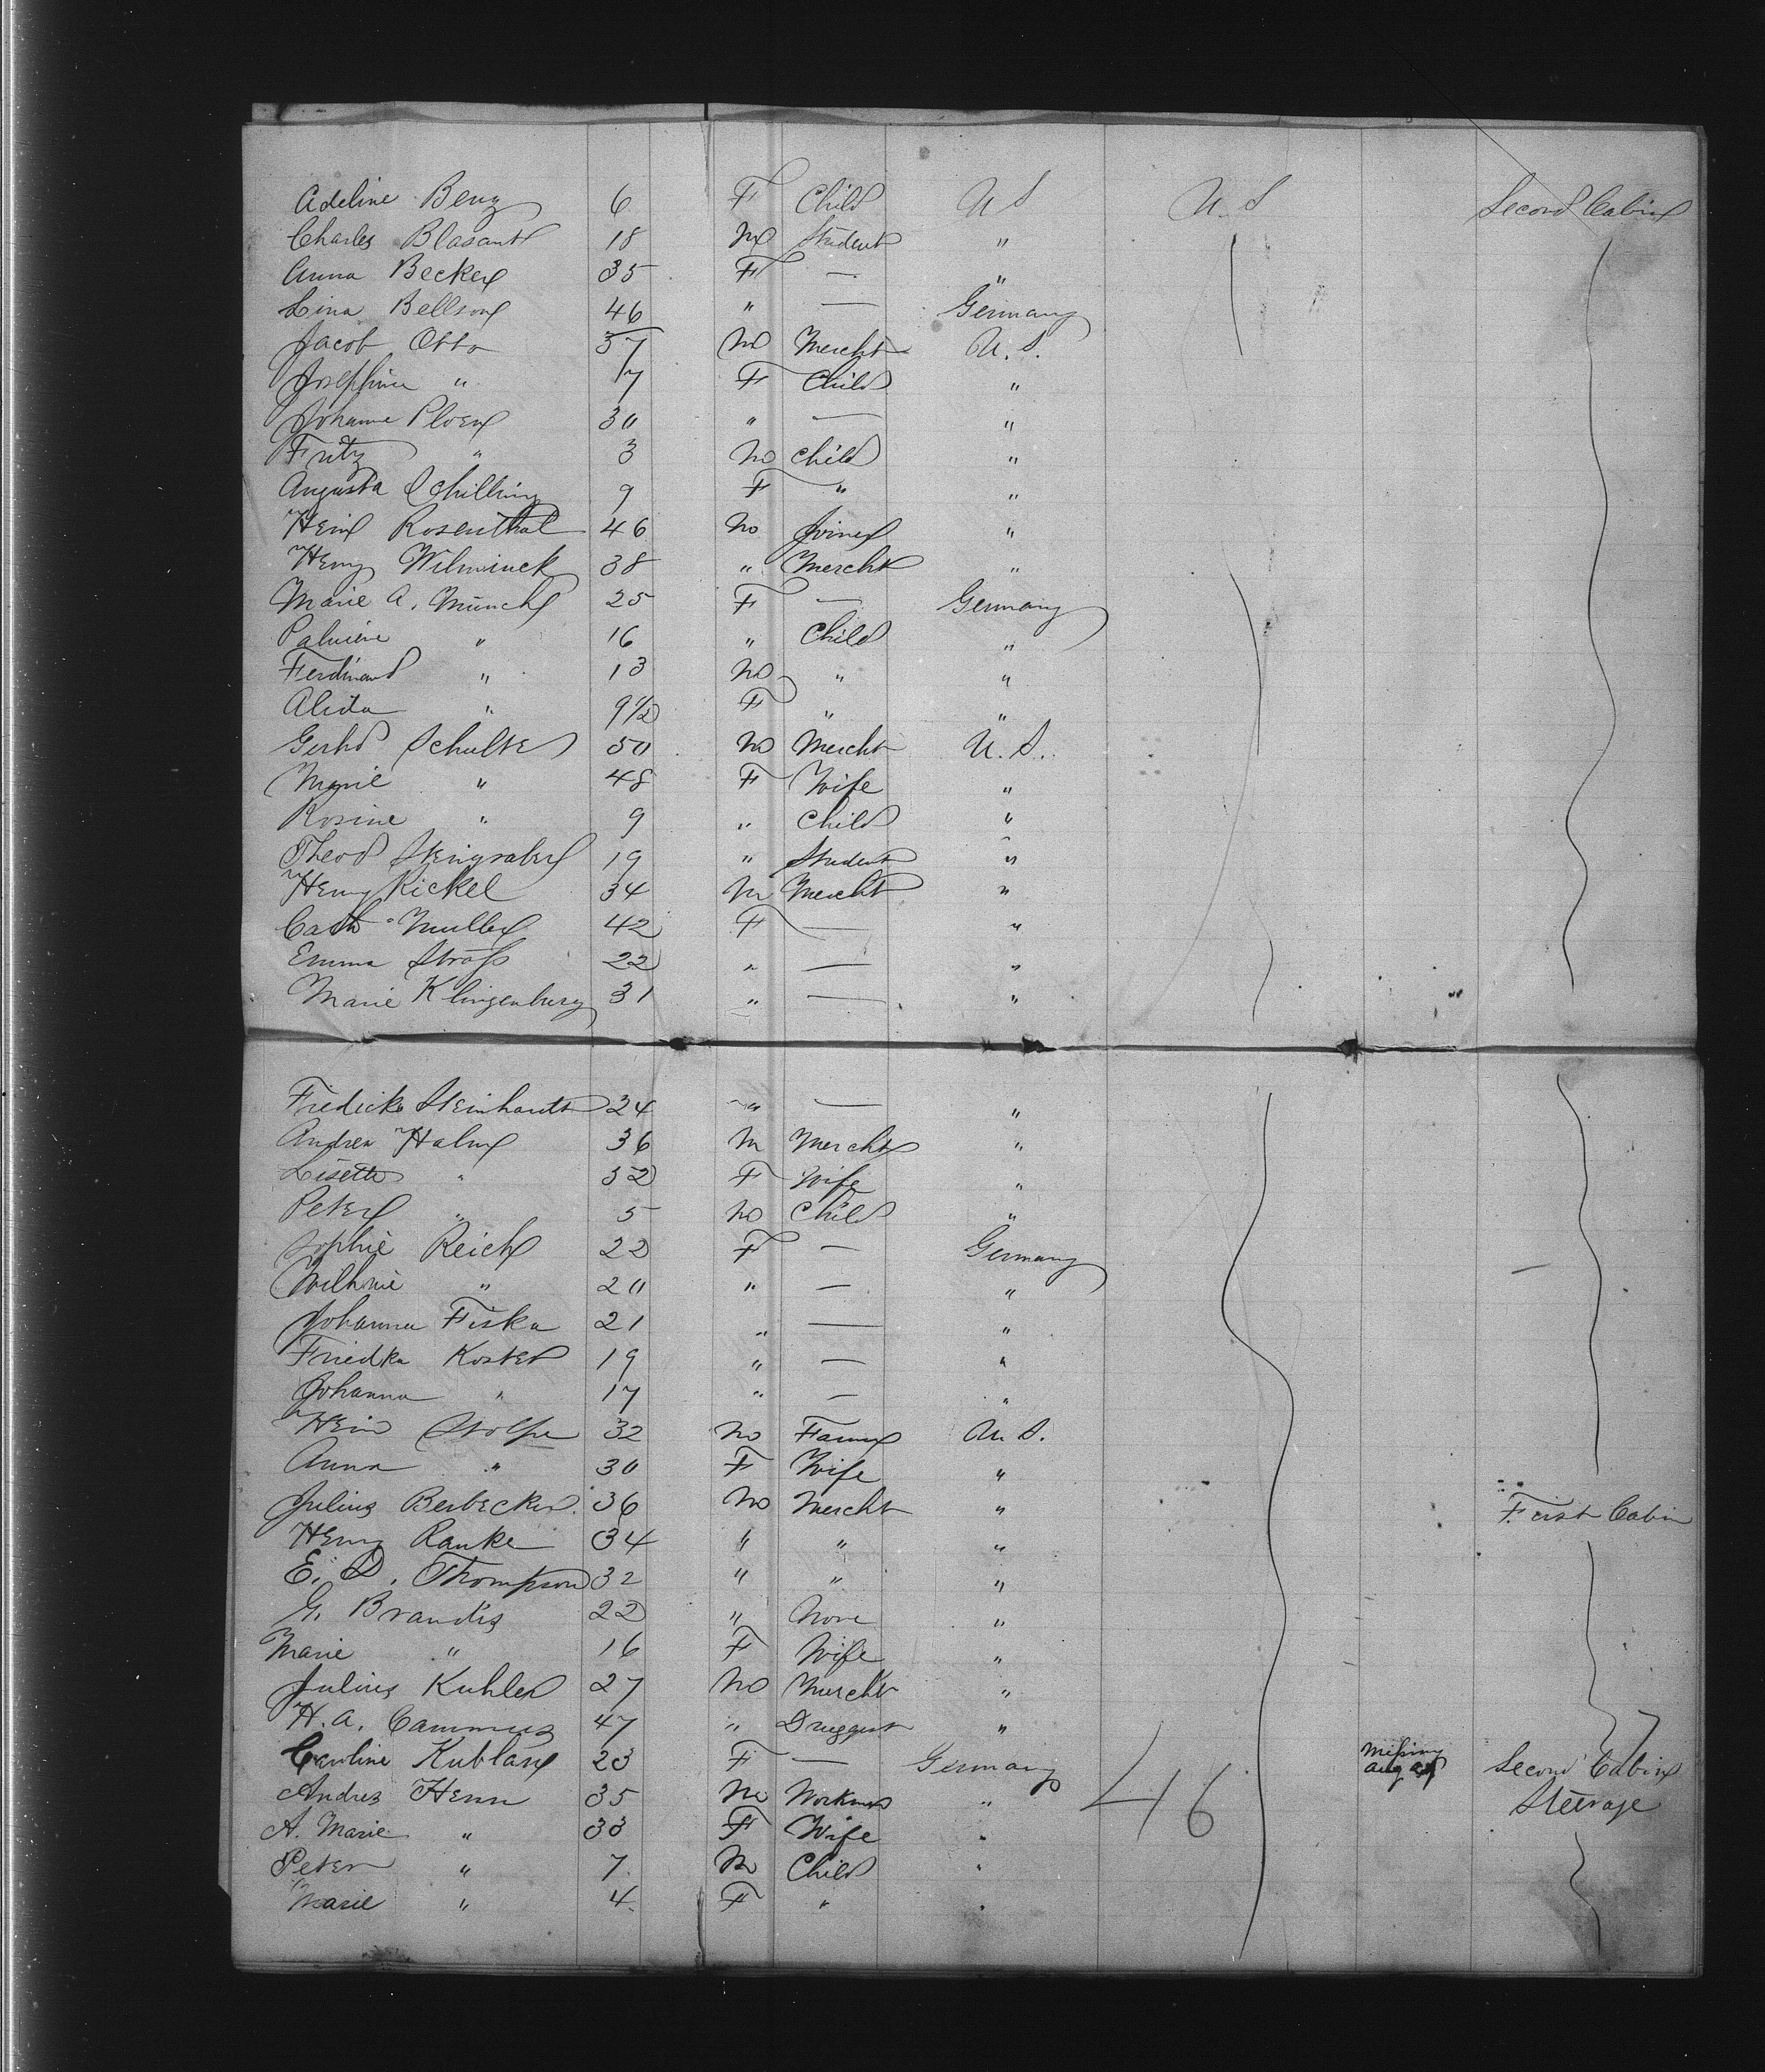 Adeline Benz 6 F Child U S U. S Second Cabin
Charles Blasant 18 M Student "
Anna Becker 35 F — "
Lina Bellson 46 " — Germany
Jacob Otto 37 M Mercht U. S.
Josephine " 7 F Child "
Johanne Ploen 30 " — "
Fritz " 3 M Child "
Augusta Schilling 9 F " "
Hein Rosenthal 46 M Joiner "
Henry Wilminck 38 " Mercht "
Marie A. Münch 25 F — Germany
Palmine " 16 " Child "
Ferdinand " 13 M " "
Alida " 9 1/2 F " "
Gerhd Schulte 50 M Mercht U. S.
Marie " 48 F Wife "
Rosine " 9 " Child "
Theod 19 " Student "
Henry Rickel 34 M Mercht "
Cath Muller 42 F — "
Emma Strass 22 " — "
Marie Klingenburg 31 " — "
Fredicke Steinhardt 24 " — "
Andrea Halm 36 M Mercht "
Lisette " 32 F Wife "
Peter " 5 M Child "
Sophie Reich 22 F — Germany
Wilhmie " 20 " — "
Johanna Fiska 21 " — "
Friedka Koster 19 " — "
Johanna " 17 " — "
Hein Stolpe 32 M Farmer U. S.
Anna " 30 F Wife "
Julius Berbecker 36 M Mercht " First Cabin
Henry Ranke 34 " " "
E. D. Thompson 32 " " "
G. Brandis 22 " None "
Marie " 16 F Wife "
Julius Kuhler 27 M Mercht "
H. A. Cammus 47 " Druggist "
Caroline Kublan 23 F — Germany Missing Aug Second Cabin
Andres Henn 35 M Workman " 46 Steerage
A. Marie " 33 F Wife "
Peter " 7 M Child "
Marie " 4 F " "